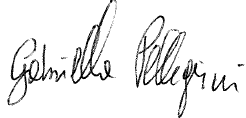 Gabriella Pellegrini